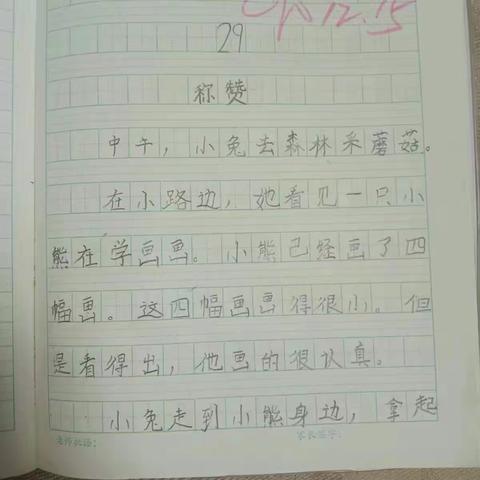 12.15
29
称赞
中午，小兔去森林采蘑菇。
在小路边，她看见一只小
熊在学画画。小熊已经画了四
幅画。这四幅画画得很小。但
是看得出，他画的很认真。
小兔走到小熊身边，拿起
老师批语：
家长签字：